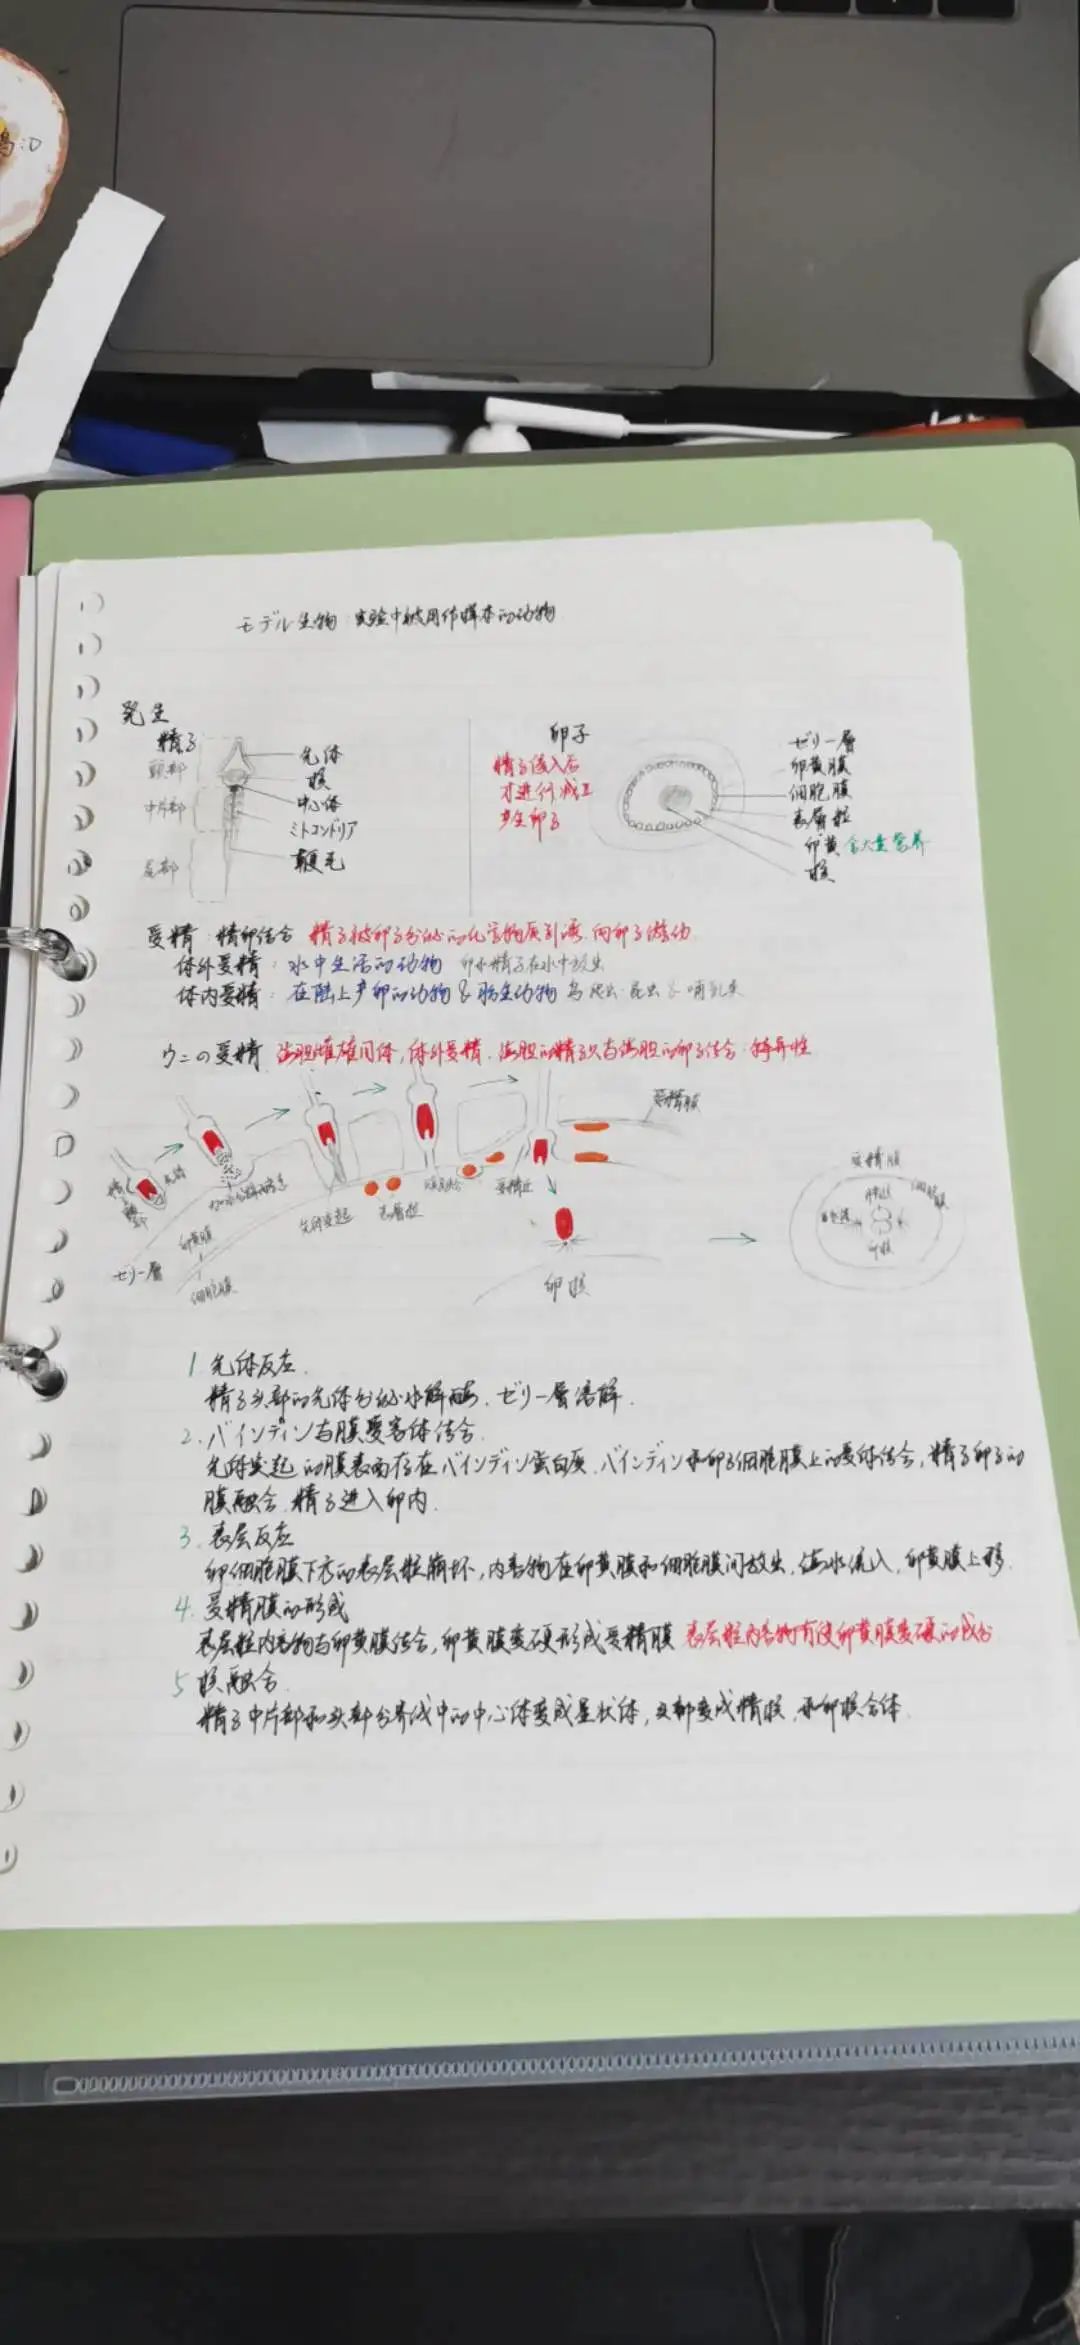 モデル生物 实验中被用作标本的动物
発生
精子
頭部
中片部
尾部
先体
核
中心体
ミトコンドリア
鞭毛
卵子
精子侵入后
才进行减Ⅱ
产生卵子
ゼリー層
卵黄膜
細胞膜
表層粒
卵黄 含大量营养
核
受精 精卵结合 精子被卵子分泌的化学物质引诱 向卵子游动
体外受精: 水中生活的动物 卵和精子在水中放出
体内受精: 在陆上产卵的动物 & 胎生动物 鸟 爬虫 昆虫 & 哺乳类
ウニの受精 海胆雌雄同体, 体外受精. 海胆的精子只与海胆的卵子结合: 特异性
受精膜
先体突起
表層粒
ゼリー層
卵黄膜
細胞膜
卵核
受精膜
精核
卵核
1 先体反应.
精子头部的先体分泌水解酶, ゼリー層溶解.
2. バインディン与膜受容体结合.
先体突起的膜表面存在バインディン蛋白质. バインディン和卵子细胞膜上的受体结合, 精子卵子的
膜融合. 精子进入卵内.
3. 表层反应
卵细胞膜下方的表层粒崩坏, 内容物在卵黄膜和细胞膜间放出, 海水流入, 卵黄膜上移.
4. 受精膜的形成
表层粒内容物与卵黄膜结合, 卵黄膜变硬形成受精膜 表层粒内容物有使卵黄膜变硬的成分
5 核融合.
精子中片部和头部分界线中的中心体变成星状体, 头部变成精核, 和卵核合体.